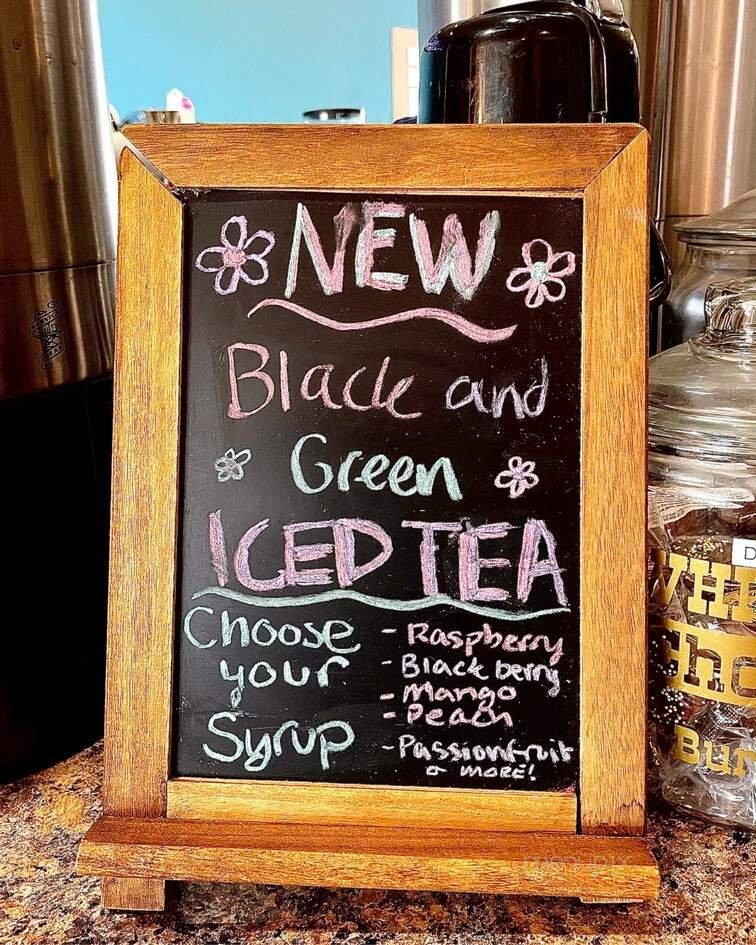 NEW
Black and
Green
ICED TEA
Choose
your
Syrup
- Raspberry
- Blackberry
- Mango
- Peach
- Passionfruit
& MORE!
D
WHI
cho
Bun
menupix